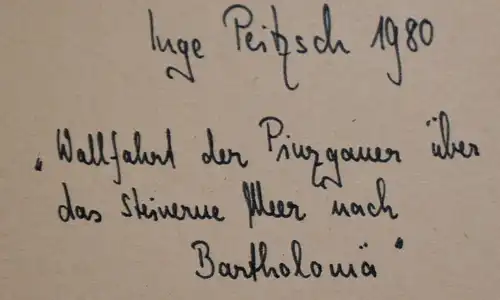 Inge Peitzsch 1980
"Wallfahrt der Pinzgauer über
das Steinerne Meer nach
Bartholomä"